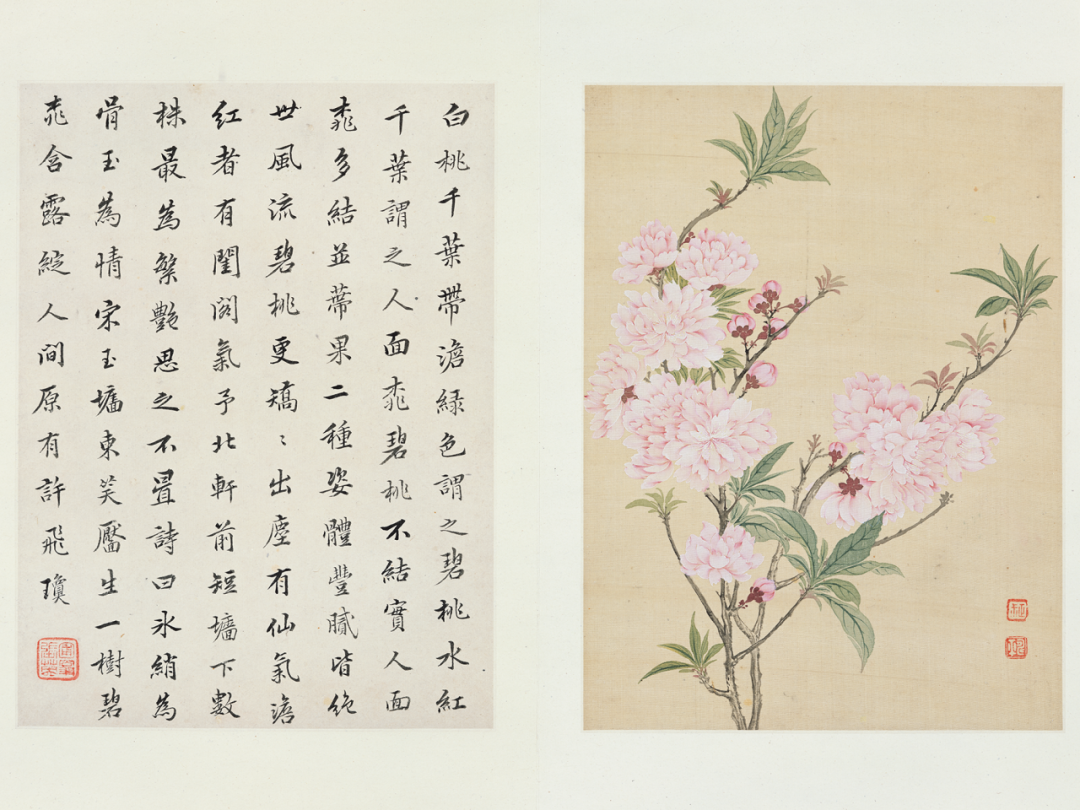 白桃千葉帶澹綠色謂之碧桃水紅
千葉謂之人面桃碧桃不結實人面
桃多結並蒂果二種姿體豐膩皆絕
世風流碧桃更矯〻出塵有仙氣澹
紅者有閨閣氣予北軒前短墻下數
株最為繁艷思之不置詩曰氷綃為
骨玉為情宋玉墻東笑靨生一樹碧
桃含露綻人間原有許飛瓊